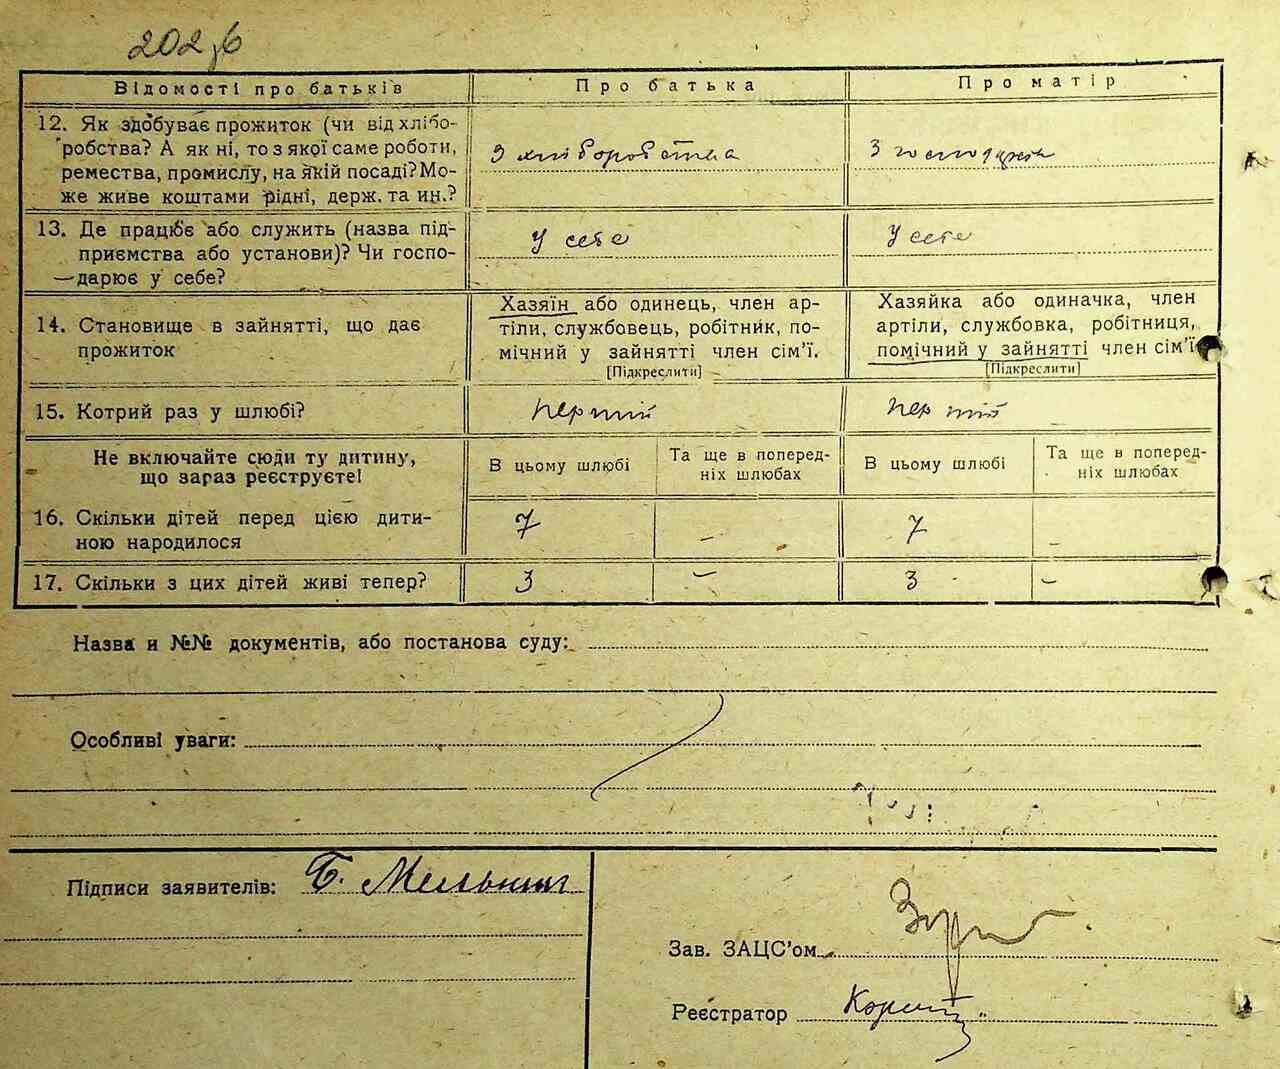 202
Відомості про батьків
Про батька
Про матір
12. Як здобуває прожиток (чи від хлібо-
робства? А як ні, то з якої саме роботи,
ремества, промислу, на якій посаді? Мо-
же живе коштами рідні, держ. та ин.?
З хліборобства
З господарки
13. Де працює або служить (назва під-
приємства або установи)? Чи госпо-
дарює у себе?
У себе
У себе
14. Становище в зайнятті, що дає
прожиток
Хазяїн або одинець, член ар-
тіли, службовець, робітник, по-
мічний у зайнятті член сім'ї.
[Підкреслити]
Хазяйка або одиначка, член
артіли, службовка, робітниця,
помічний у зайнятті член сім'ї
[Підкреслити]
15. Котрий раз у шлюбі?
перший
перший
Не включайте сюди ту дитину,
що зараз реєструєте!
В цьому шлюбі
Та ще в поперед-
ніх шлюбах
В цьому шлюбі
Та ще в поперед-
ніх шлюбах
16. Скільки дітей перед цією дити-
ною народилося
7
-
7
-
17. Скільки з цих дітей живі тепер?
3
-
3
-
Назва и №№ документів, або постанова суду:
Особливі уваги:
Підписи заявителів: Б. Мельник
Зав. ЗАЦС'ом
Реєстратор